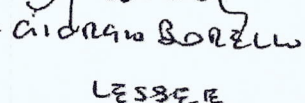 GIORDANO BORELLO
LESSEE